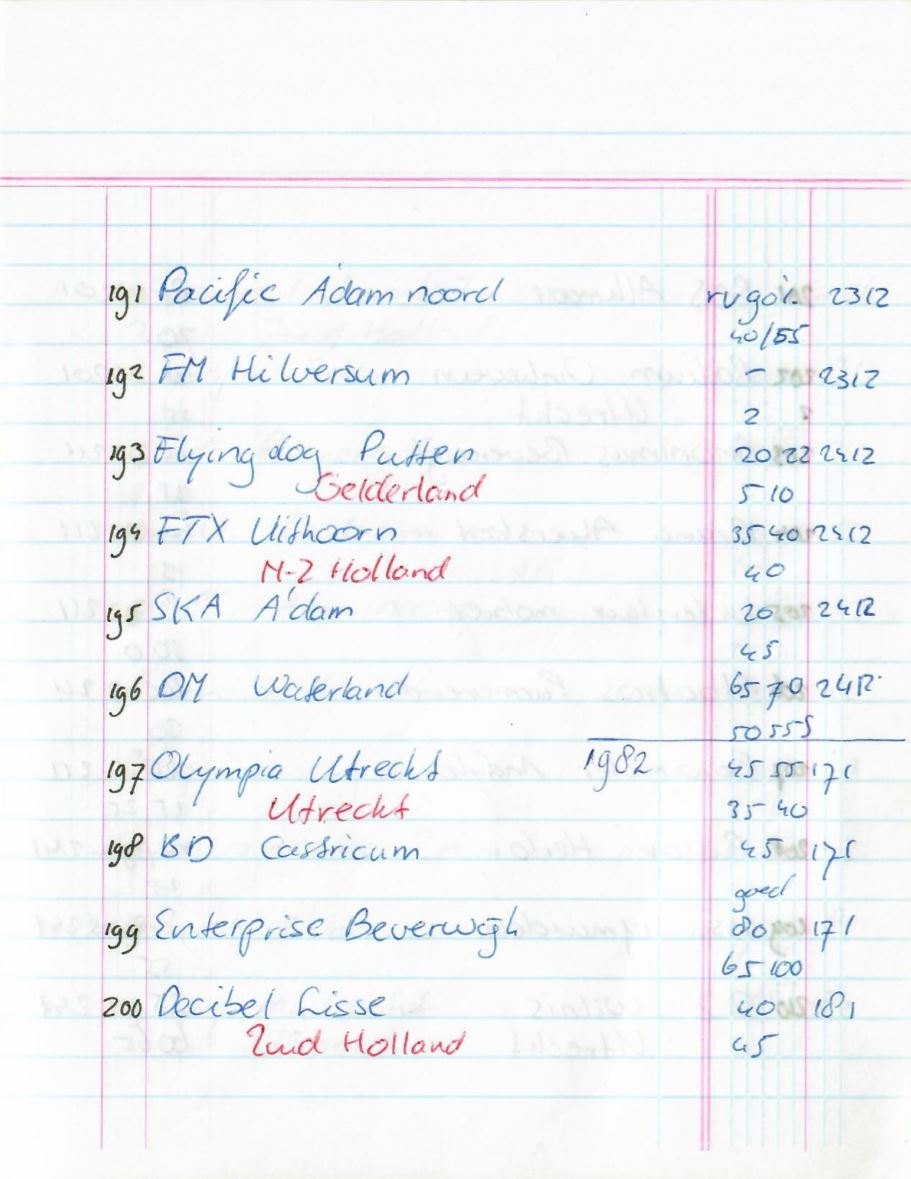 191 Pacific A'dam noord rugo% 2312
40/55
192 FM Hilversum - 2312
2
193 Flying dog Putten 20 22 2412
Gelderland 5 10
194 FTX Uithoorn 35 40 2412
N-Z Holland 40
195 SKA A'dam 20 2412
45
196 DM Waterland 65 70 2412
50 555
1982
197 Olympia Utrecht 45 50 171
Utrecht 35 40
198 BD Castricum 45 171
goed
199 Enterprise Beverwijk 80 171
65 100
200 Decibel Lisse 40 181
Zuid Holland 45